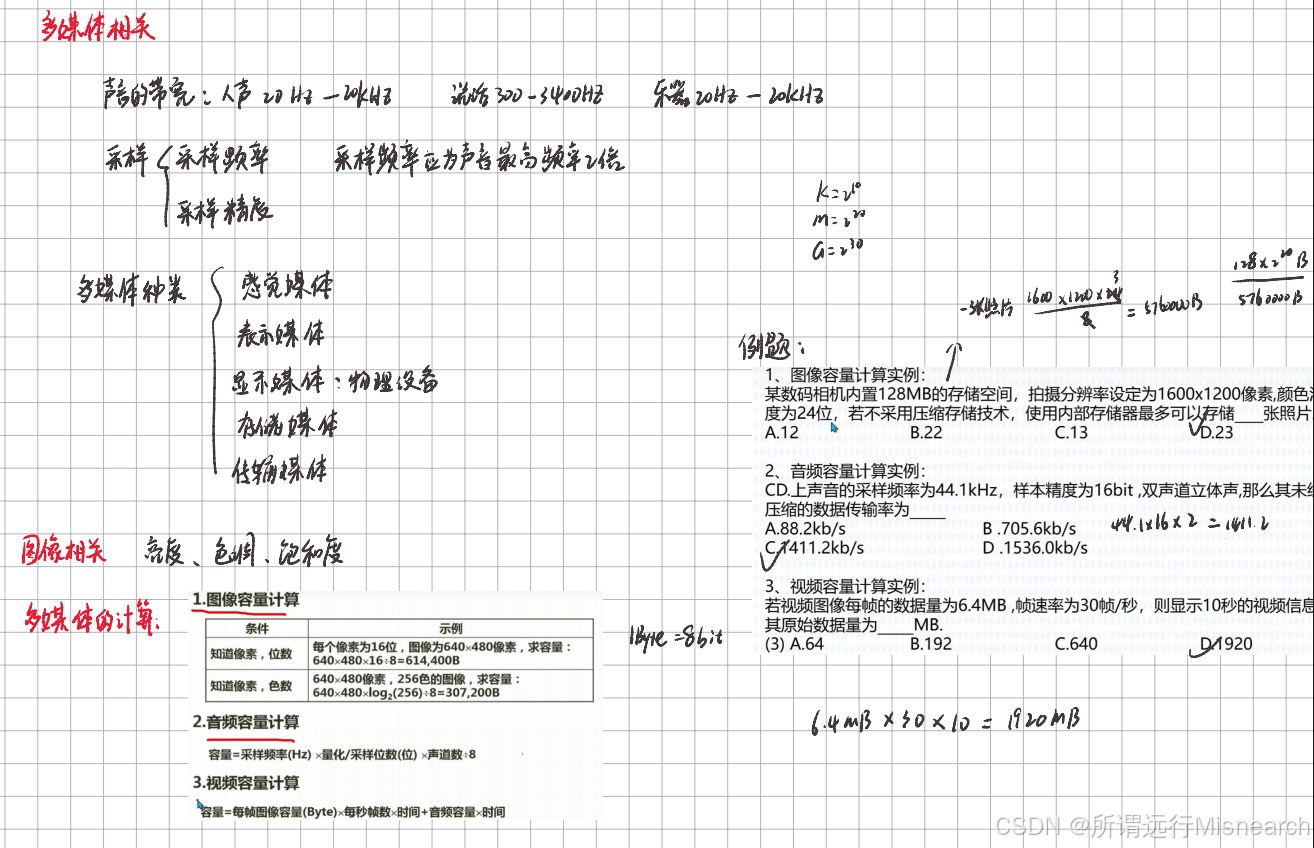 多媒体相关
声音的带宽：人声 20Hz—20kHz 说话300-3400HZ 乐器20Hz—20KHZ
采样 采样频率 采样频率应为声音最高频率2倍
采样精度
K=2^10
m=2^20
G=2^30
多媒体种类
感觉媒体
表示媒体
显示媒体：物理设备
存储媒体
传输媒体
一张照片 1600×1200×24 3 / 8 = 5760000B
128×2^20 B / 5760000B
例题：
1、图像容量计算实例：
某数码相机内置128MB的存储空间，拍摄分辨率设定为1600x1200像素,颜色
度为24位，若不采用压缩存储技术，使用内部存储器最多可以存储____张照片
A.12 B.22 C.13 D.23
2、音频容量计算实例：
CD.上声音的采样频率为44.1kHz，样本精度为16bit ,双声道立体声,那么其未
压缩的数据传输率为_____
A.88.2kb/s B .705.6kb/s
C.1411.2kb/s D .1536.0kb/s
44.1×16×2=1411.2
3、视频容量计算实例：
若视频图像每帧的数据量为6.4MB ,帧速率为30帧/秒，则显示10秒的视频信息
其原始数据量为_____MB.
(3) A.64 B.192 C.640 D.1920
6.4MB×30×10=1920MB
图像相关 亮度、色调、饱和度
多媒体的计算：
1.图像容量计算
条件 示例
知道像素，位数 每个像素为16位，图像为640×480像素，求容量：
640×480×16÷8=614,400B
知道像素，色数 640×480像素，256色的图像，求容量：
640×480×log₂(256)÷8=307,200B
1Byte=8bit
2.音频容量计算
容量=采样频率(Hz) ×量化/采样位数(位) ×声道数÷8
3.视频容量计算
容量=每帧图像容量(Byte)×每秒帧数×时间+音频容量×时间
CSDN @所谓远行Misnearch